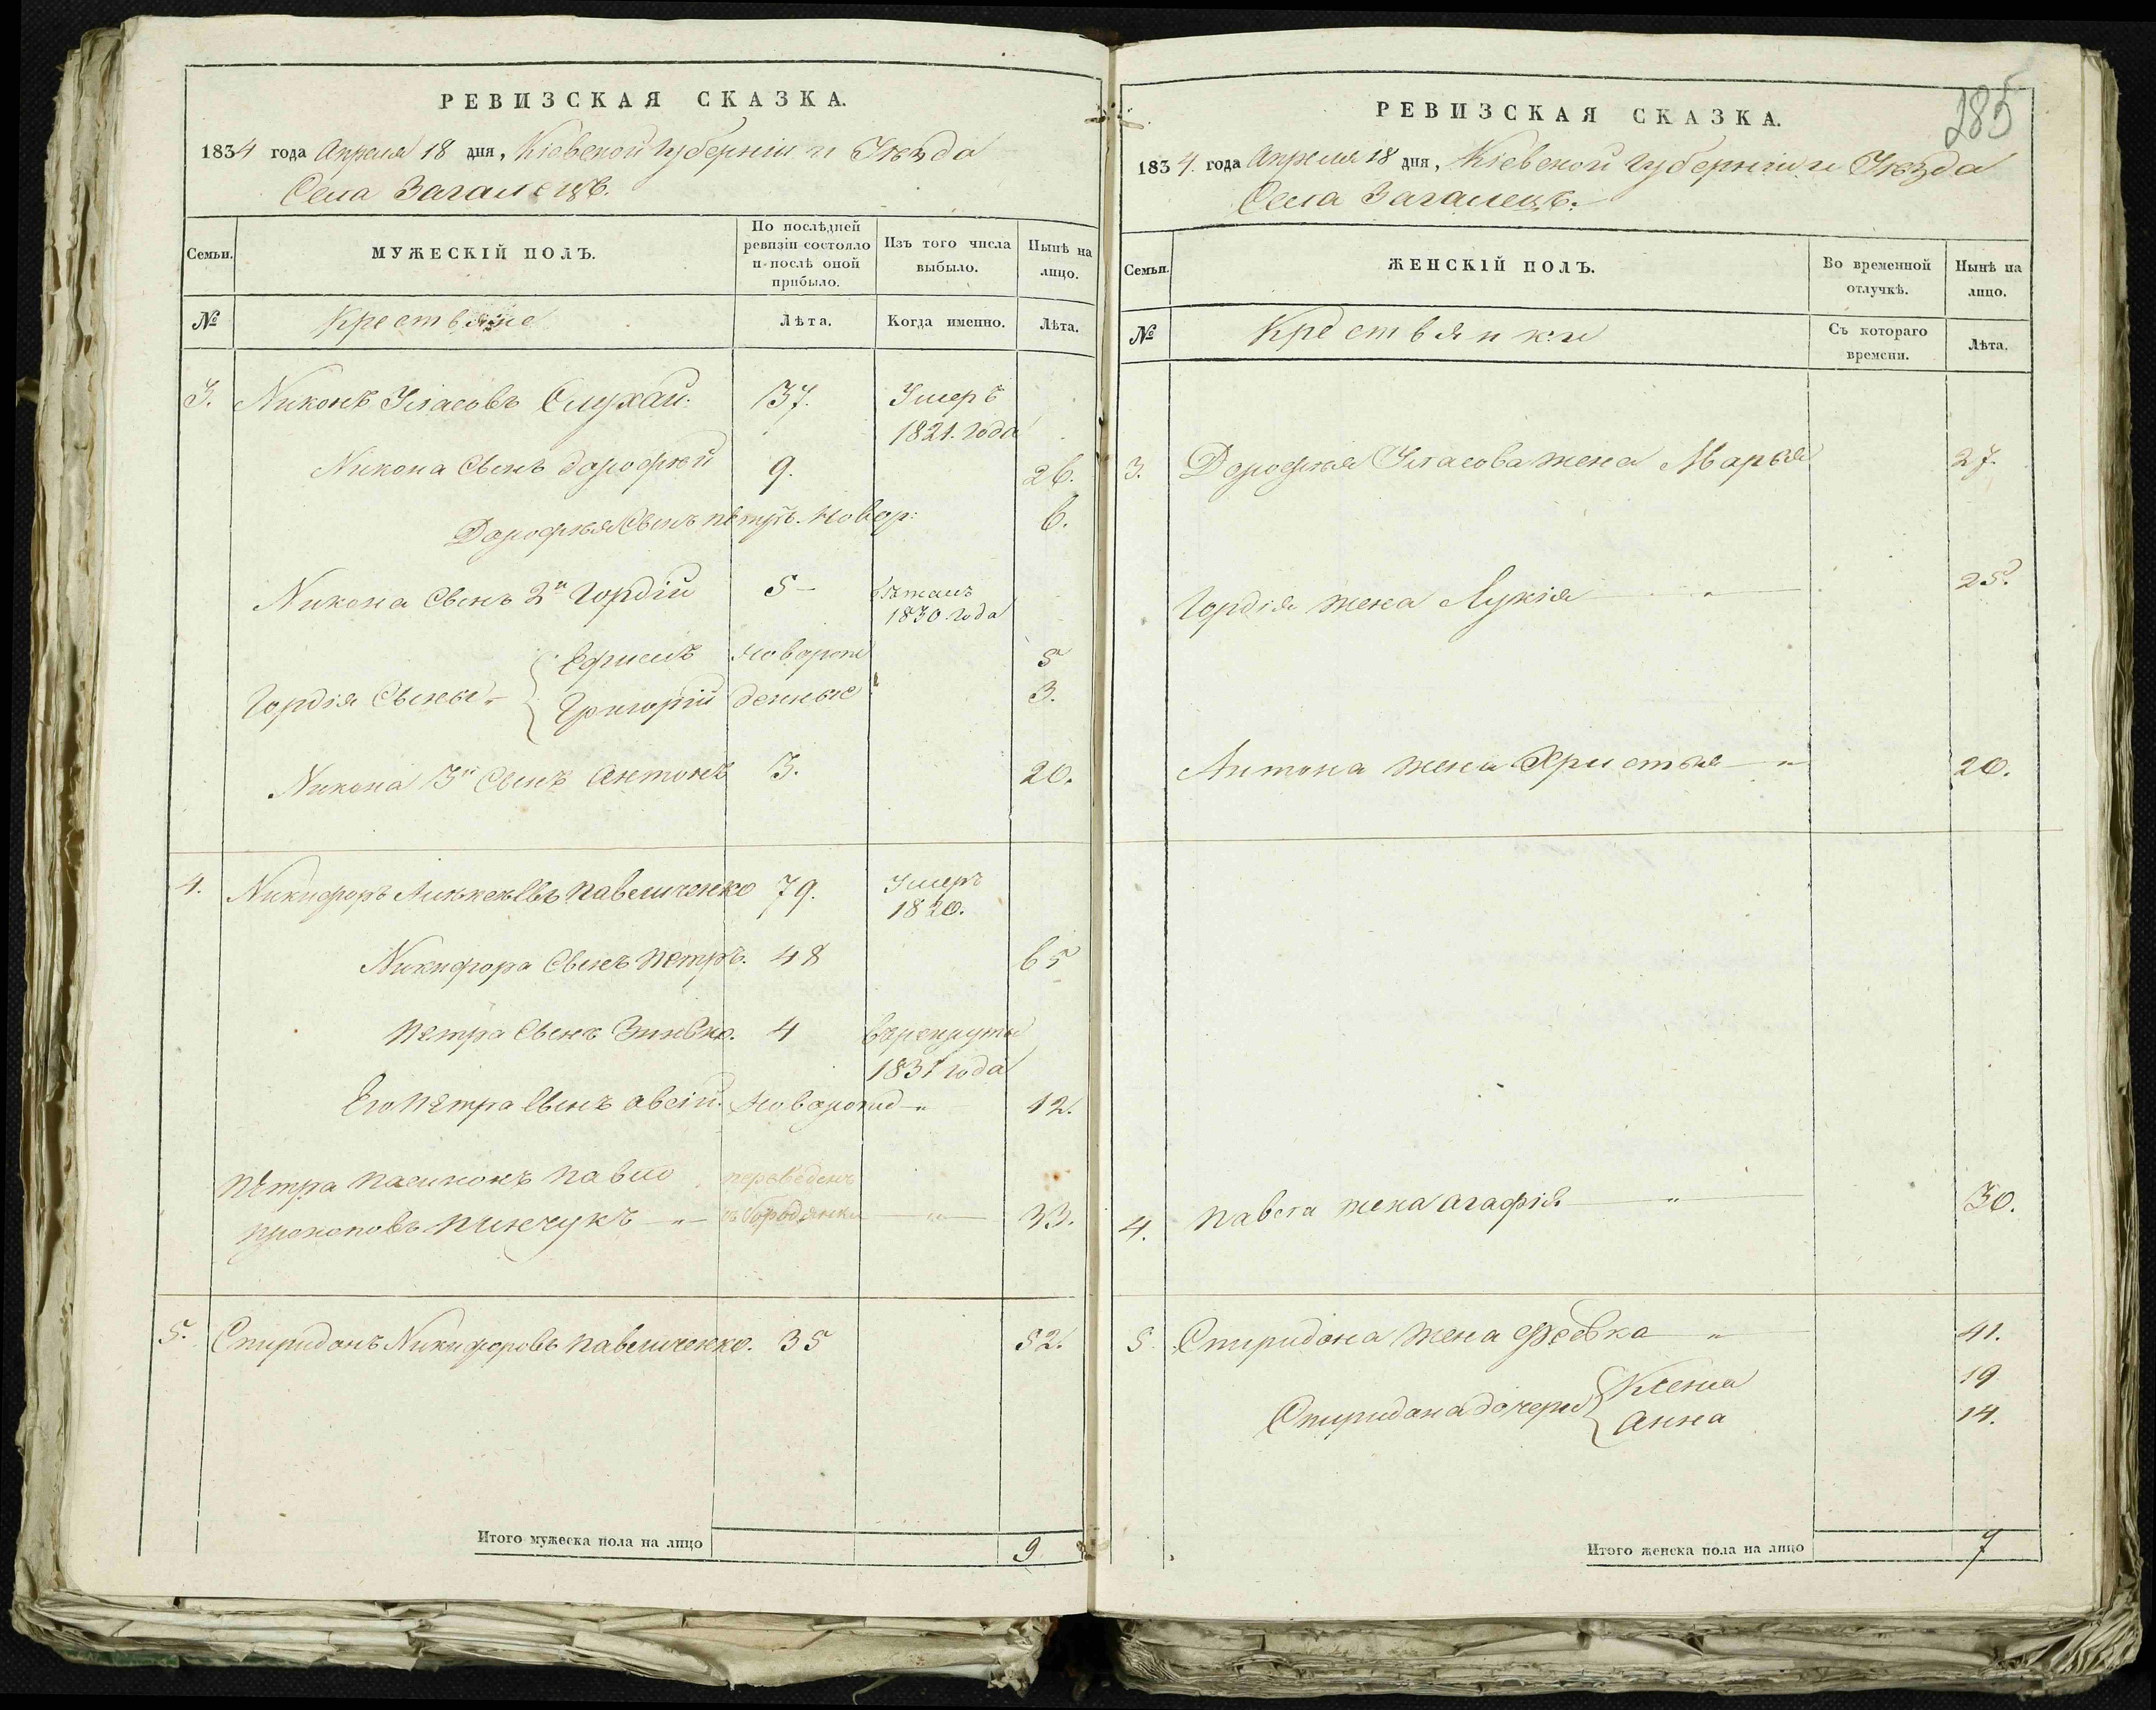 РЕВИЗСКАЯ СКАЗКА.
1834 года Апреля 18 дня, Кіевской губерніи и Уезда
Села Загалецъ.
Семьи.
МУЖЕСКІЙ ПОЛЪ.
По послѣдней
ревизіи состояло
и послѣ оной
прибыло.
Изъ того числа
выбыло.
Нынѣ на
лицо.
№
Крестьяне
Лѣта.
Когда именно.
Лѣта.
3. Никонъ Уласовъ Слухай. 37. Умеръ
1821. года
Никона Сынъ дорофѣй 9. 26.
Дорофѣя Сынъ петръ. новор: 6.
Никона Сынъ 2й Гордій 5 - бѣжалъ
1830 года
Ефимъ новорож 5
Гордія Сыны „ Григорій денные 3.
Никона 3й Сынъ Антонъ 3. 20.
4. Никифоръ павличенко 79. Умеръ
1820.
Никифора Сынъ петръ. 48 65
петра Сынъ Зинько. 4 въ рекруты
1831 года
Его петра Сынъ авсій. новорожд - „ 12.
петра пасинокъ павло переведенъ
прокоповъ пинчукъ - „ - съ бородянки - „ - 33.
5. Спиридонъ Никифоровъ павличенко. 35 52.
Итого мужеска пола на лицо 9
285
РЕВИЗСКАЯ СКАЗКА.
1834. года Апреля 18 дня, Кіевской губерніи и Уезда
Села Загалецъ.
Семьи.
ЖЕНСКІЙ ПОЛЪ.
Во временной
отлучкѣ.
Нынѣ на
лицо.
№
Крестьянки
Съ котораго
времени.
Лѣта.
3. Дорофѣя Уласова жена Марья 27.
Гордія жена Лукія - „ - 25.
Антона жена Христья - „ 20.
4. павла жена агафія - „ - 30.
5. Спиридона жена Февка - „ - 41.
Ксенія 19
Спиридона дочери
Анна 14.
Итого женска пола на лицо 7